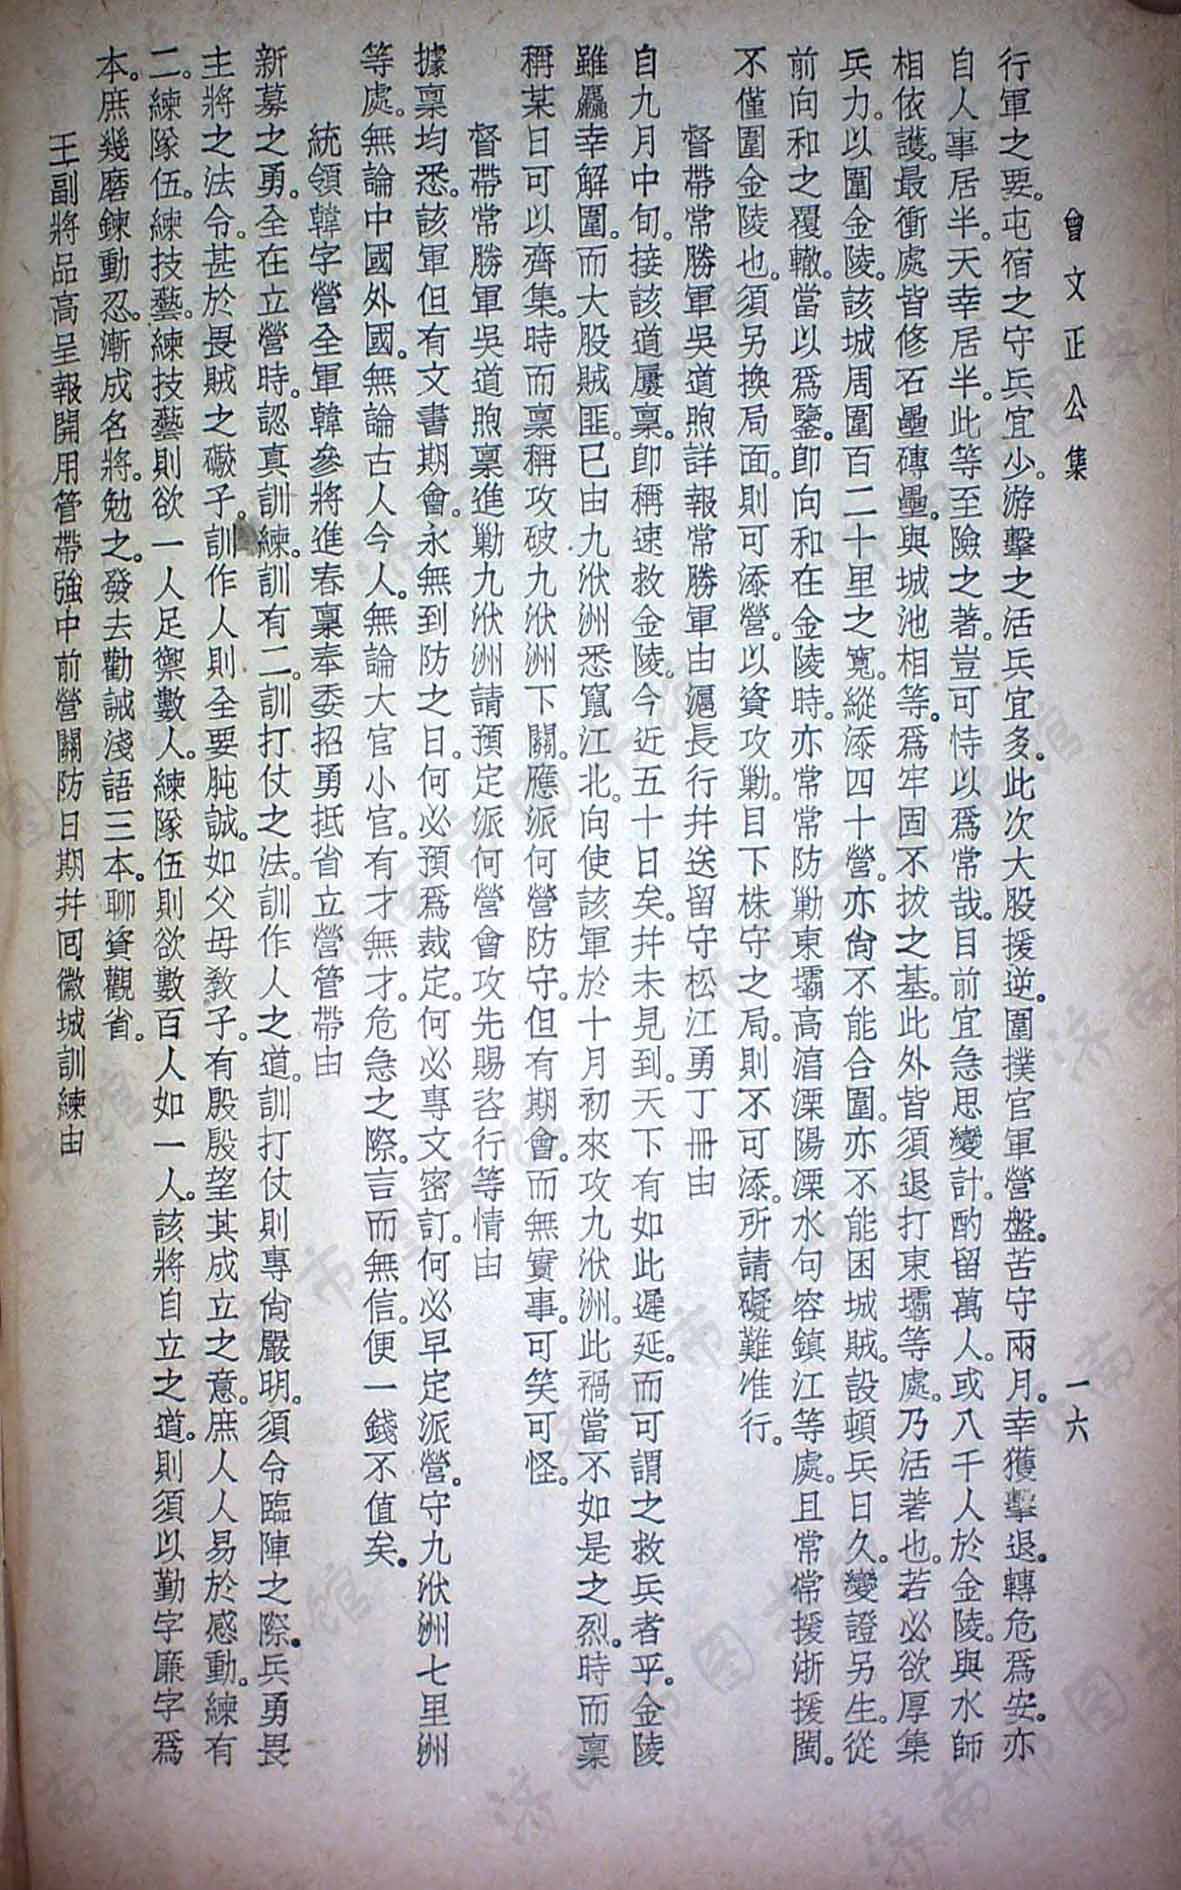 曾文正公集
一六
行軍之要。屯宿之守兵宜少。游擊之活兵宜多。此次大股援逆。圍撲官軍營盤。苦守兩月。幸獲擊退。轉危爲安。亦
自人事居半。天幸居半。此等至險之著。豈可恃以爲常哉。目前宜急思變計。酌留萬人。或八千人於金陵。與水師
相依護。最衝處皆修石壘磚壘。與城池相等。爲牢固不拔之基。此外皆須退打東壩等處。乃活著也。若必欲厚集
兵力。以圍金陵。該城周圍百二十里之寬。縱添四十營。亦尙不能合圍。亦不能困城賊。設頓兵日久。變證另生。從
前向和之覆轍。當以爲鑒。卽向和在金陵時。亦常常防勦東壩高湻溧陽溧水句容鎮江等處。且常常援浙援閩。
不僅圍金陵也。須另換局面。則可添營。以資攻勦。目下株守之局。則不可添。所請礙難准行。
督帶常勝軍吳道煦詳報常勝軍由滬長行幷送留守松江勇丁冊由
自九月中旬。接該道屢稟。卽稱速救金陵。今近五十日矣。幷未見到。天下有如此遲延。而可謂之救兵者乎。金陵
雖驫幸解圍。而大股賊匪。已由九洑洲悉竄江北。向使該軍於十月初來攻九洑洲。此禍當不如是之烈。時而稟
稱某日可以齊集。時而稟稱攻破九洑洲下關。應派何營防守。但有期會。而無實事。可笑可怪。
督帶常勝軍吳道煦稟進勦九洑洲請預定派何營會攻先賜咨行等情由
據稟均悉。該軍但有文書期會。永無到防之日。何必預爲裁定。何必專文密訂。何必早定派營。守九洑洲七里洲
等處。無論中國外國。無論古人今人。無論大官小官。有才無才。危急之際。言而無信。便一錢不值矣。
統領韓字營全軍韓參將進春稟奉委招勇抵省立營管帶由
新募之勇。全在立營時。認真訓練。訓有二。訓打仗之法。訓作人之道。訓打仗則專尙嚴明。須令臨陣之際。兵勇畏
主將之法令。甚於畏賊之礮子。訓作人則全要肫誠。如父母敎子。有殷殷望其成立之意。庶人人易於感動。練有
二。練隊伍。練技藝。練技藝則欲一人足禦數人。練隊伍則欲數百人如一人。該將自立之道。則須以勤字廉字爲
本。庶幾磨鍊動忍。漸成名將。勉之。發去勸誡淺語三本。聊資觀省。
王副將品高呈報開用管帶強中前營關防日期幷囘徽城訓練由